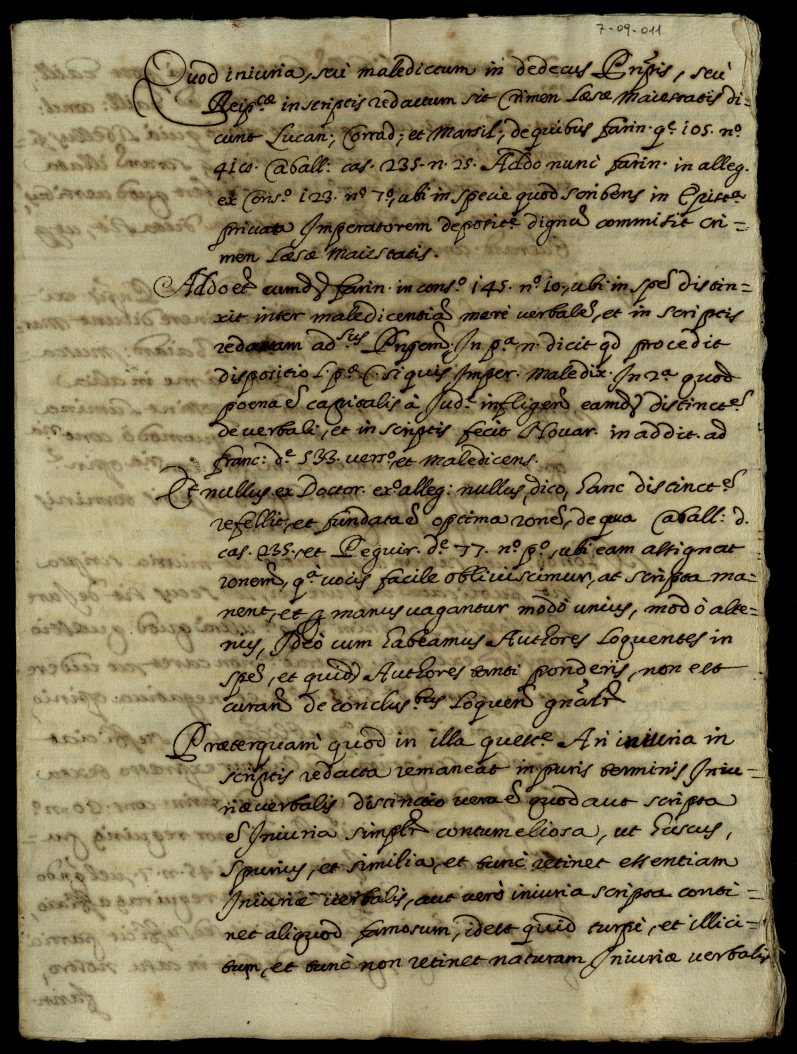 7-09-011
Quod iniuria, seu maledictum in dedecus Prñpis, seu
Reipcæ in scriptis redactum sit Crimen Læsæ Maiestatis di-
cunt Lucan; Conrad; et Marsil; de quibus farin. qe 105. no
410. Caball: cas. 235. n. 25. Addo nunc farin. in alleg.
ex Conso 123. no 70, ubi in specie quod scribens in Epistola
privata Imperatorem depositione dignũ commisit cri=
men Læsæ Maiestatis.
Addo et eumdẽ farin. in conso 145. no 10, ubi in spẽ distin=
xit inter maledicentiã merè verbalẽ, et in scriptis
redactam adversus Prñpem; In pa n. dicit qd procedit
dispositio l. pa C. si quis Imper. maledix. In 2a quod
poena ẽ capitalis à Jude infligenda eamdẽ distinctẽ
de verbali, et in scriptis fecit Novar. in addit. ad
franc: de 533. verso et maledicens.
Et nullus ex Doctor. exo alleg: nullus, dico, hanc distinctẽ
refellit, et fundata ẽ optima ronẽ, de qua Caball: d.
cas. 235. et Peguer. de 77. no po, ubi eam assignat
ronem, qa vocis facile obliviscimur, at scripta ma=
nent, et p manus vagantur modò unius, modò alte=
rius, Ideò cum habeamus Authores loquentes in
spẽ, et quidẽ Authores tanti ponderis, non est
curandũ de conclusbus loquentibus gnãlr
Præterquam quod in illa queste An iniuria in
scriptis redacta remaneat in puris terminis Iniu=
riæ verbalis distinctio vera ẽ quod aut scripta
ẽ Iniuria simplr contumeliosa, ut Luscus,
Spurius, et similia, et tunc retinet essentiam
Iniuriæ verbalis, aut verò iniuria scripta conti=
net aliquod famosum, idest quid turpe, et illici=
tum, et tunc non retinet naturam Iniuriæ verbalis